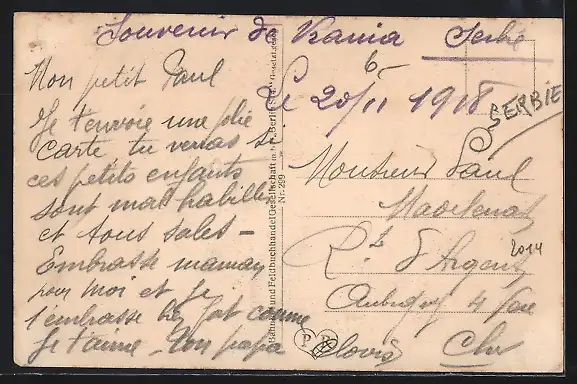 Souvenir de Vrania Serbie
le 20/11 1918
6
SERBIE
Mon petit Paul
Je t'envoie une jolie
carte tu verras si
ces petits enfants
sont mal habillés
et tous sales -
Embrasse maman
pour moi et je
t'embrasse bien fort comme
je t'aime - Ton papa
Clovis
Bahnhof- und Feldbuchhandel Gesellschaft m.b.H. Berlin
Nr. 299
Monsieur Paul
R.te d'Argent
Aubigny s Nère
Cher
2014